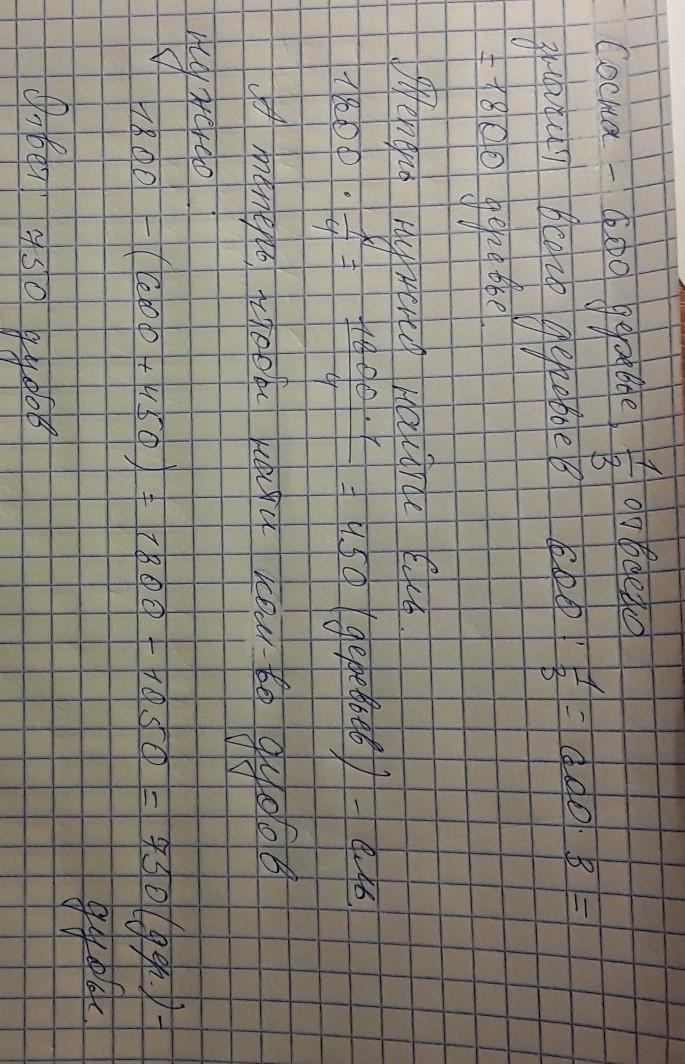 Сосна - 600 деревье, 1/3 от всего
значит всего деревьев 600 : 1/3 = 600 · 3 =
= 1800 деревье.
Теперь нужно найти Ель.
1800 · 1/4 = 1800 · 1/4 = 450 (деревьев) - ель.
А теперь, чтобы найти кол-во дубов
нужно:
1800 - (600 + 450) = 1800 - 1050 = 750 (дер.) -
дубы.
Ответ: 750 дубов